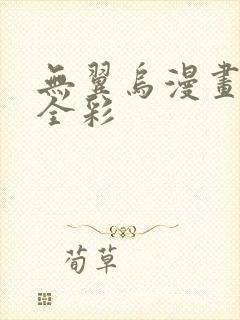 無翼烏漫畫
全彩
荀草